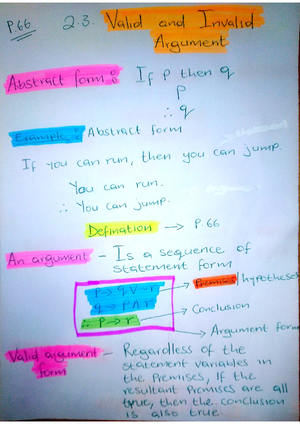 P.66
2.3. Valid and Invalid
Argument
Abstract form: If P then q
P
∴ q
Example: Abstract form
If you can run, then you can jump.
You can run.
∴ You can jump.
Defination → P.66
An argument - Is a sequence of
statement form
P → q V ~r
q → P ∧ r
∴ P → r
Premises/hypotheses
Conclusion
Argument form
Valid argument
form
- Regardless of the
statement variables in
the Premises, If the
resultant Premises are all
true, then the conclusion
is also true.